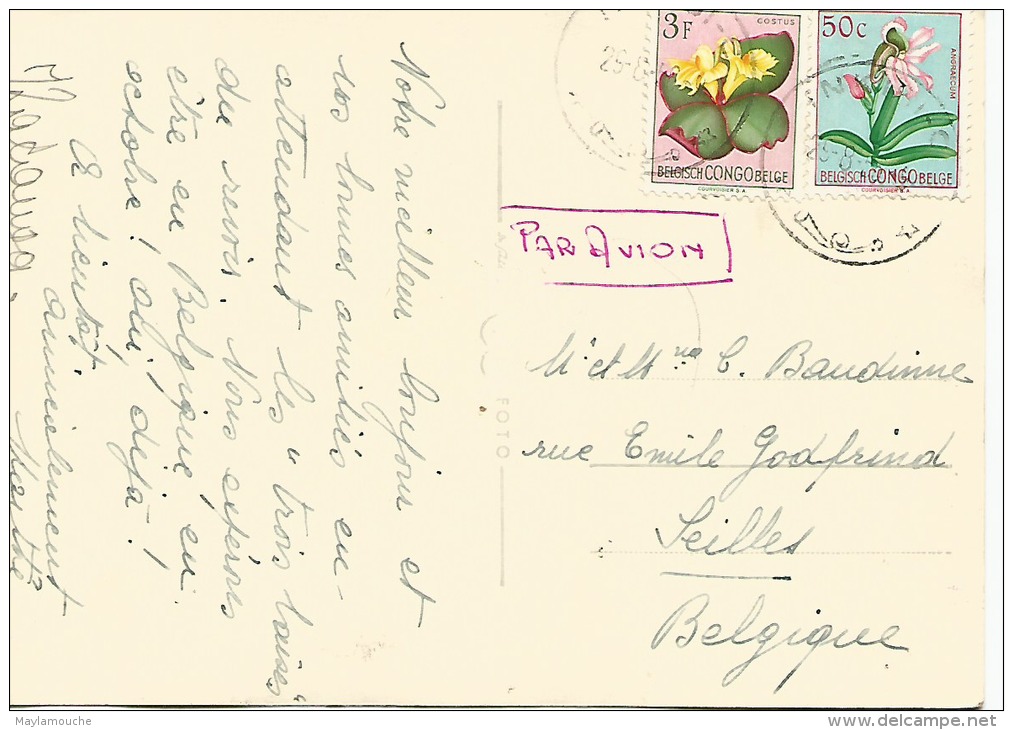 Notre meilleur bonjour et
vos bonnes amitiés en-
attendant les "trois baises"
du revoir. Nous espérons
être en Belgique en
octobre! oui, déjà!
A bientôt,
amicalement
3F
COSTUS
BELGISCH CONGO BELGE
COURVOISIER S.A.
50c
ANGRAECUM
BELGISCH CONGO BELGE
COURVOISIER S.A.
PAR AVION
FOTO
Mr et Mme C. Baudinne
rue Emile Godfrind
Seilles
Belgique
Maylamouche
delcampe.net